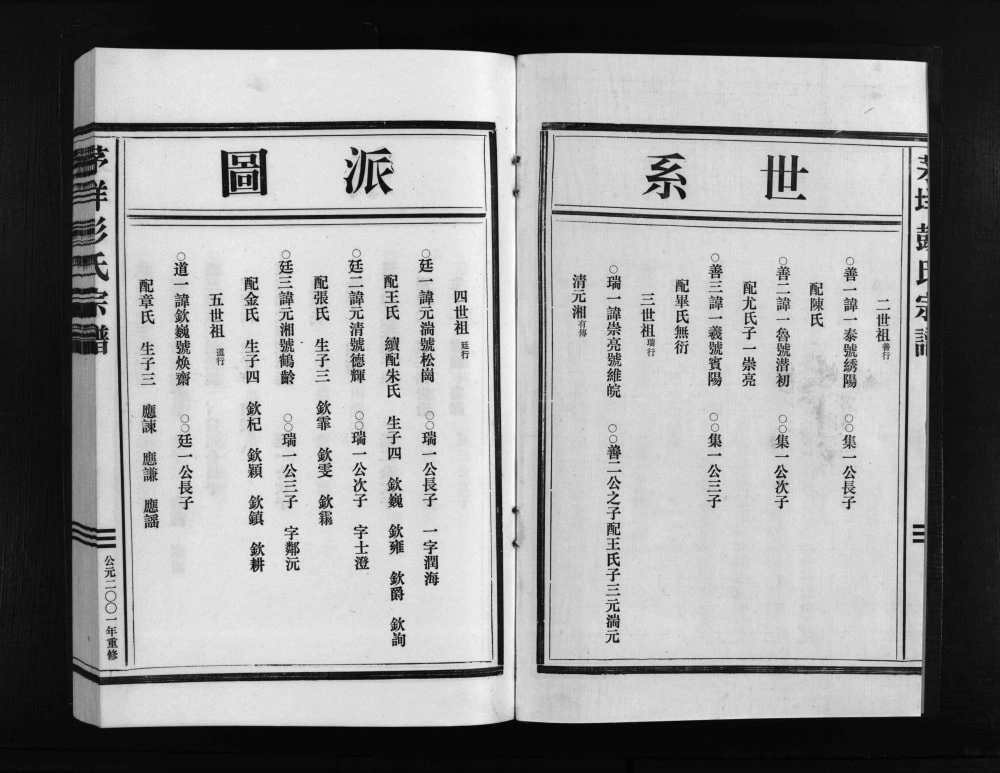 世系
二世祖 善行
○善一諱一泰號綉陽 ○○集一公長子
配陳氏
○善二諱一魯號潛初 ○○集一公次子
配尤氏子一崇亮
○善三諱一羲號賓陽 ○○集一公三子
配畢氏無衍
三世祖 瑞行
○瑞一諱崇亮號維皖 ○○善二公之子配王氏子三元湍元
清元湘 有傳
派圖
四世祖 廷行
○廷一諱元湍號松崗 ○○瑞一公長子 一字潤海
配王氏 續配朱氏 生子四 欽巍 欽雍 欽爵 欽詢
○廷二諱元清號德輝 ○○瑞一公次子 字士澄
配張氏 生子三 欽霏 欽雯 欽霱
○廷三諱元湘號鶴齡 ○○瑞一公三子 字鄰沅
配金氏 生子四 欽杞 欽穎 欽鎮 欽耕
五世祖 道行
○道一諱欽巍號煥齋 ○○廷一公長子
配章氏 生子三 應諫 應謙 應謡
彭氏宗譜
公元二○○一年重修